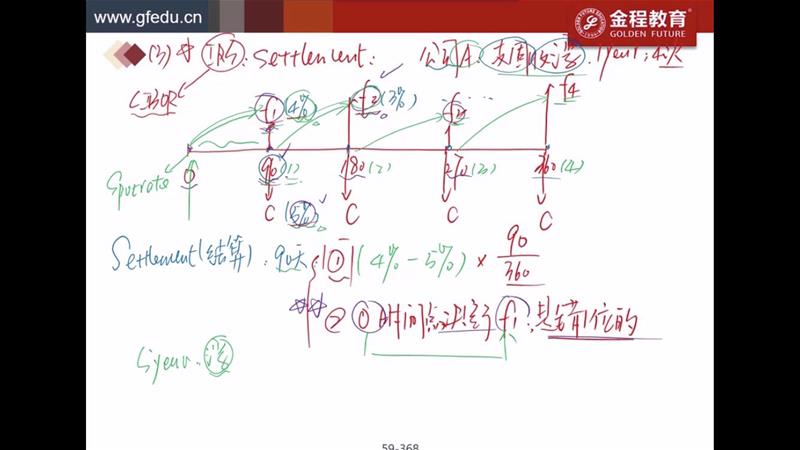 www.gfedu.cn
金程教育
GOLDEN FUTURE
(3) IRS: Settlement: 公司A: 支固收浮. 1year, 4次
LIBOR
f1 (4%) f2 (3%) f3 ... f4
Spot rate 0 90(1) 180(2) 270(3) 360(4)
C (5%) C C C
Settlement(结算): 90天 ① (4%-5%) × 90/360
② 0时间点决定了f1, 是错位的
浮
59-368